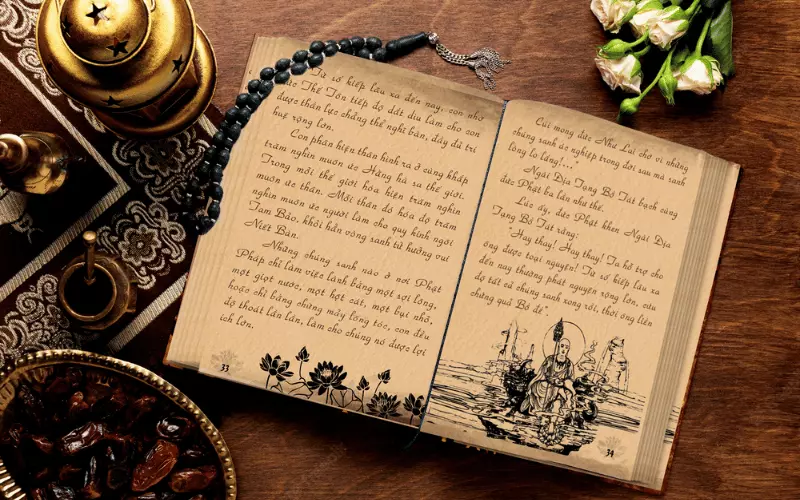 Từ số kiếp lâu xa đến nay, con nhờ
đức Thế Tôn tiếp độ dắt dìu làm cho con
được thần lực chẳng thể nghĩ bàn, đầy đủ trí
huệ rộng lớn.
Con phân hiện thân hình ra ở cùng khắp
trăm nghìn muôn ức Hằng hà sa thế giới.
Trong mỗi thế giới hóa hiện trăm nghìn
muôn ức thân. Mỗi thân đó hóa độ trăm
nghìn muôn ức người làm cho quy kính ngôi
Tam Bảo, khỏi hẳn vòng sanh tử hưởng vui
Niết Bàn.
Những chúng sanh nào ở nơi Phật
Pháp chỉ làm việc lành bằng một sợi lông,
một giọt nước, một hột cát, một bụi nhỏ,
hoặc chỉ bằng chừng mảy lông tóc, con đều
độ thoát lần lần, làm cho chúng nó được lợi
ích lớn.
33
Cúi mong đức Như Lai chớ vì những
chúng sanh ác nghiệp trong đời sau mà sanh
lòng lo lắng!..."
Ngài Địa Tạng Bồ Tát bạch cùng
đức Phật ba lần như thế.
Lúc ấy, đức Phật khen Ngài Địa
Tạng Bồ Tát rằng:
"Hay thay! Hay thay! Ta hỗ trợ cho
ông được toại nguyện! Từ số kiếp lâu xa
đến nay thường phát nguyện rộng lớn, cứu
độ tất cả chúng sanh xong rồi, thời ông liền
chứng quả Bồ đề".
34